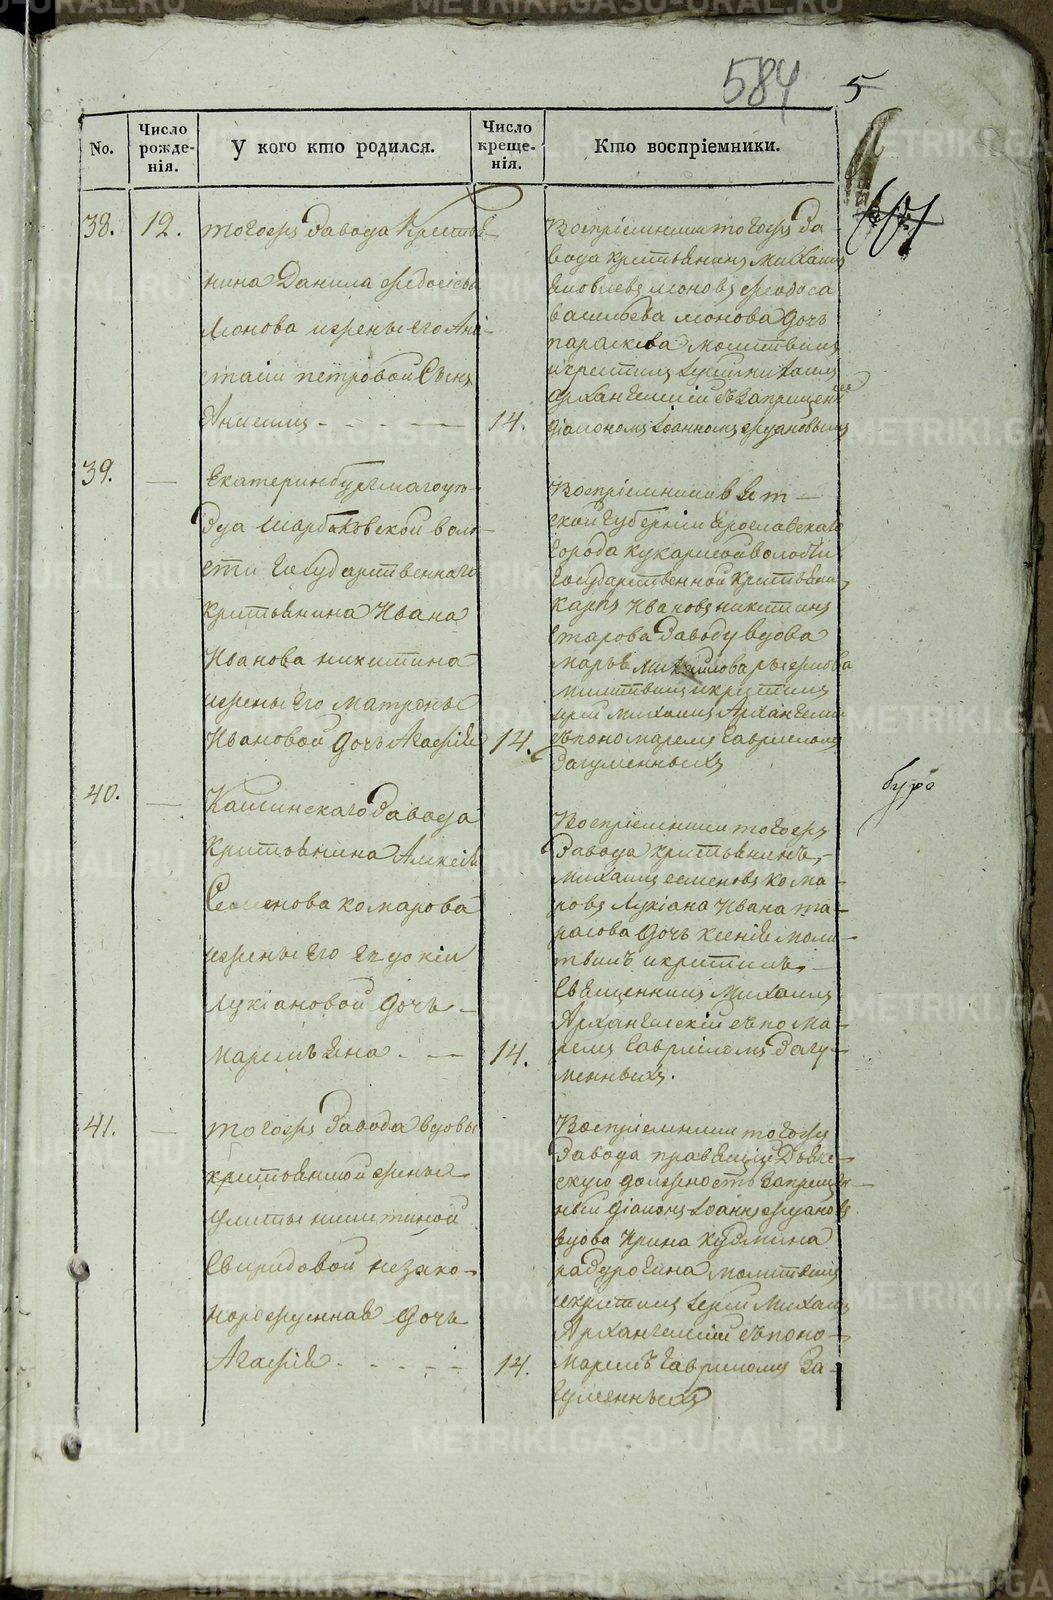 584 5
No. Число рожде-нія. У кого кто родился. Число креще-нія. Кто воспріемники.
38. 12.
тогожъ завода Крестья
нина Данила Федосѣева
Лонова и жены его Ана
стасіи петровой Сынъ
Анисимъ 14.
Воспріемники тогожъ За
вода крестьянинъ Михаилъ
Яковлевъ лоновъ феодоса
василъева лонова дочь
параскева молитвилъ
и крестилъ Іерей михаилъ
Архангельскій съ запрещен
діакономъ Іоанномъ
39. —
Екатеринбургскаго уѣ-
зда волос
сти Государственнаго
крестьянина Ивана
Иванова никитина
и жены его матроны
Ивановой дочь Агафія 14.
Воспріемники вят—
ской губерніи
города кукарской волости
Государственной крестьянин
карпъ Ивановъ никитинъ
заводу вдова
марья михайлова
молитвилъ и крестилъ
Іерей михаилъ Архангельс
съ пономаремъ Гавриломъ
Загуменныхъ
40. —
Каслинскаго Завода
Крестьянина Алексѣя
Семенова комарова
и жены его Евдокіи
Лукіановой дочь—
марем яна 14.
Воспріемники тогожъ
Завода крестьянинъ—
Михаилъ семеновъ кома-
ровъ Лукіана Ивана та-
расова дочь ксенія моли-
твилъ и крестилъ—
Священникъ Михаилъ
Архангельскій съ поно ма-
ремъ Гавриломъ Загу-
менныхъ.
41. —
тогожъ Завода вдовы
крестьянской жены
Улиты никитиной
Свиридовой незако-
норожденная дочь
Агафія 14.
Воспріемники тогожъ
Завода правящій Дьяче-
скую должность запрещен
ный діаконъ Іоаннъ
вдова Ирина Кузмина
молитвилъ
и крестилъ Іерей Михаил
Архангельскій съ поно-
маремъ Гавриломъ За-
гуменныхъ